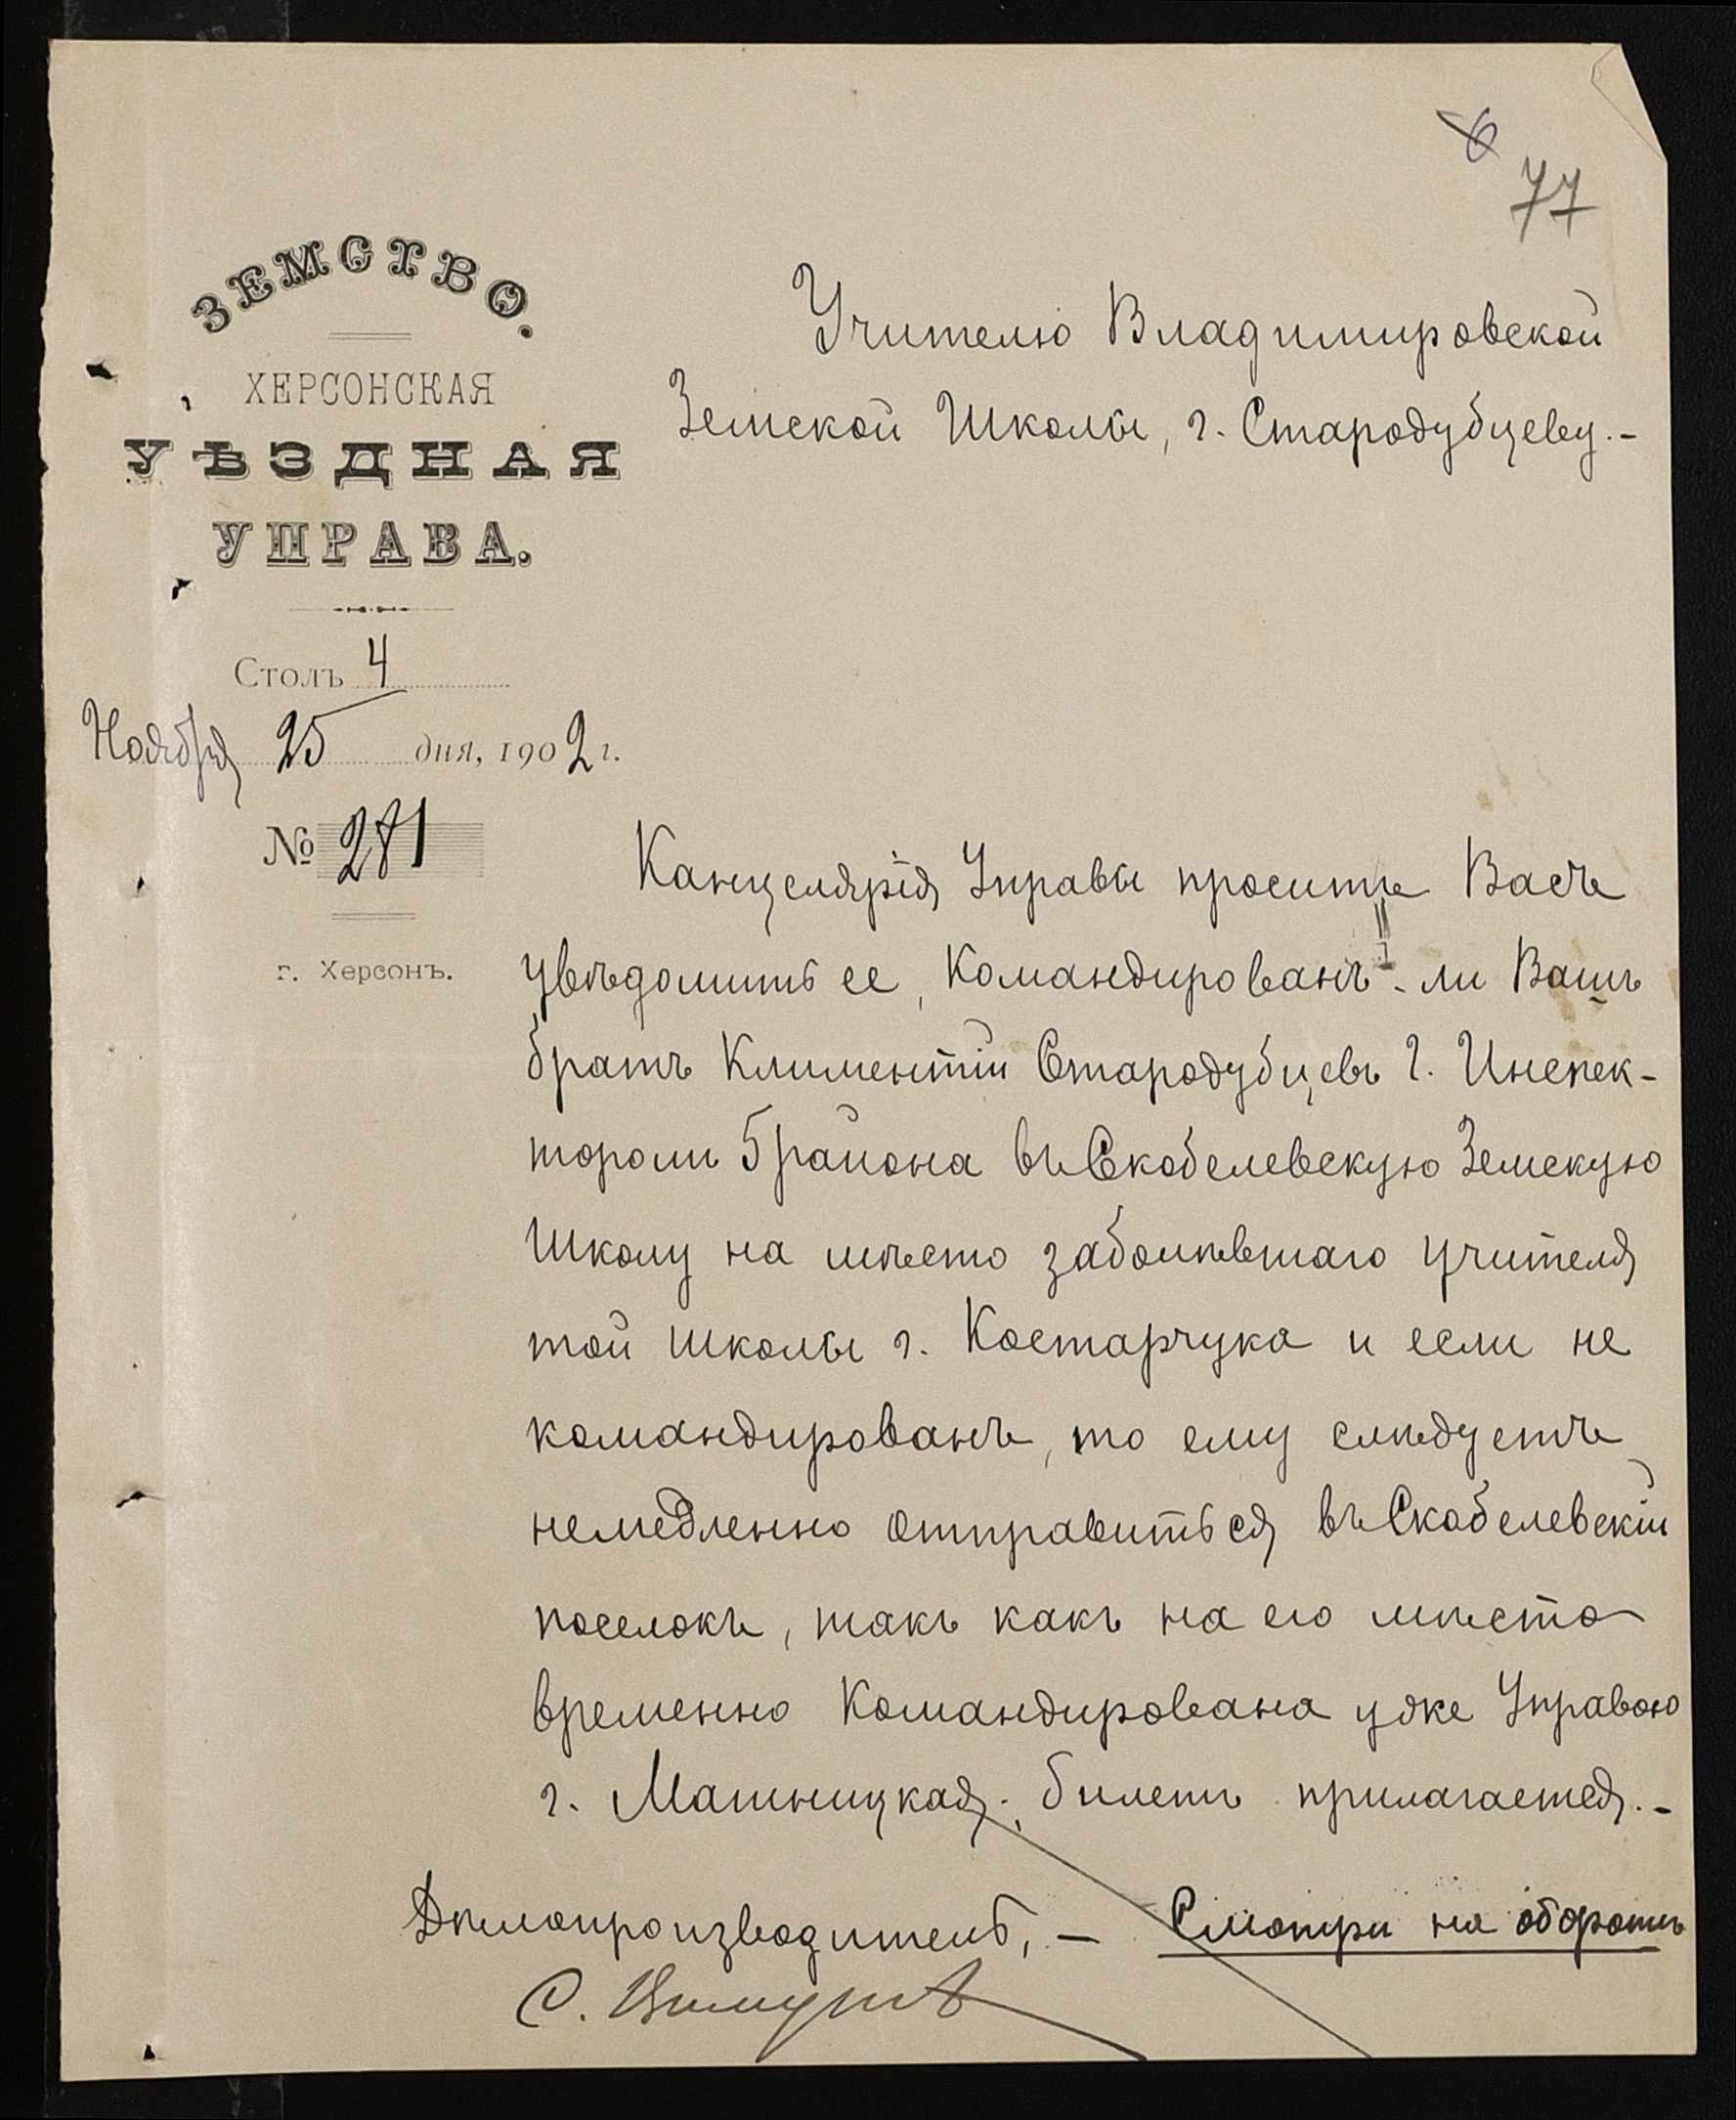 6
77
ЗЕМСТВО.
ХЕРСОНСКАЯ
УѢЗДНАЯ
УПРАВА.
Столъ 4
Ноября 25 дня, 1902 г.
№ 281
г. Херсонъ.
Учителю Владимировской
Земской Школы, г. Стародубцеву.-
Канцелярія Управы проситъ Васъ
увѣдомить ее, Командированъ-ли Вашъ
братъ Климентій Стародубцевъ Г. Инспек-
торомъ 5 района въ Скобелевскую Земскую
Школу на мѣсто заболѣвшаго учителя
той школы г. Костарчука и если не
командированъ, то ему слѣдуетъ
немедленно отправиться въ Скобелевскій
поселокъ, такъ какъ на его мѣсто
временно Командирована уже Управою
г. Матницкая; билетъ прилагается.-
Дѣлопроизводитель, - Смотри на оборотѣ
С.